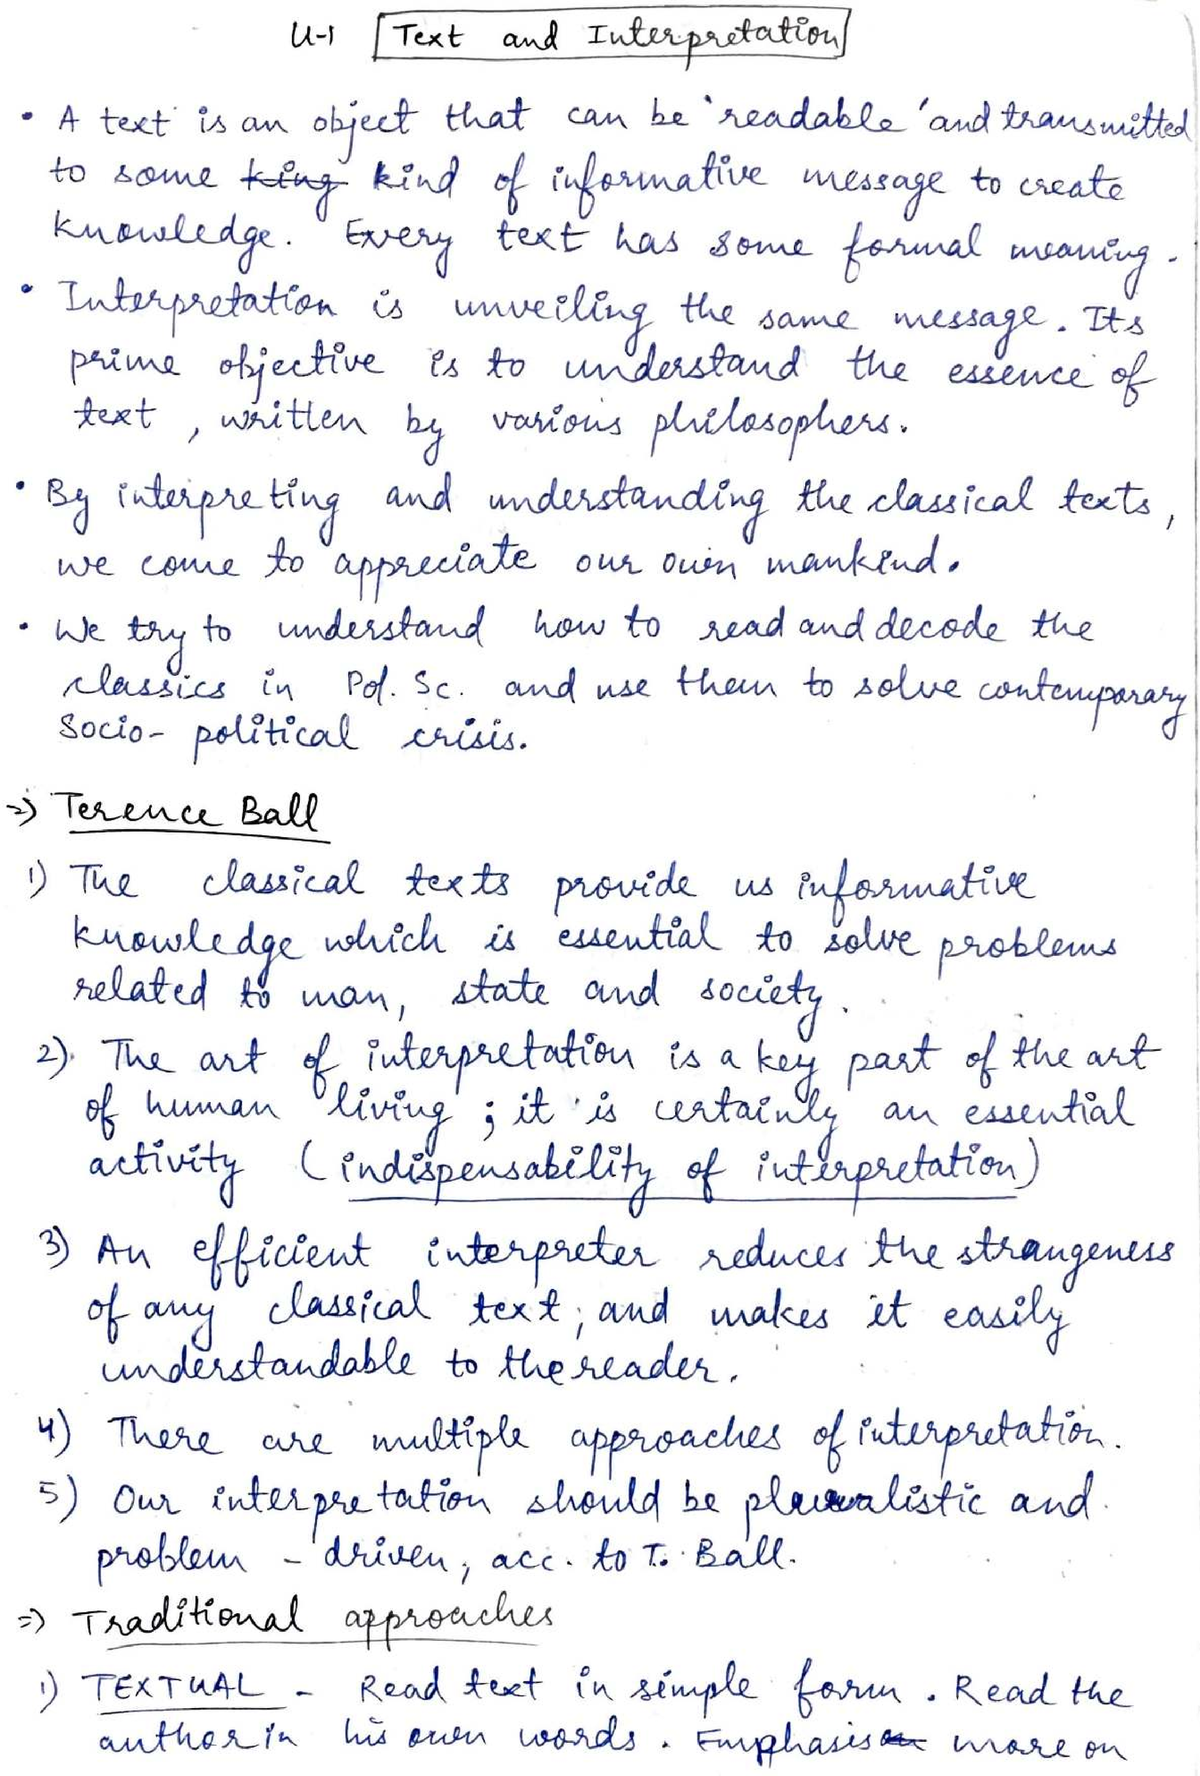 U-1 Text and Interpretation
• A text is an object that can be 'readable' and transmitted
to some king kind of informative message to create
knowledge. Every text has some formal meaning.
• Interpretation is unveiling the same message. Its
prime objective is to understand the essence of
text, written by various philosophers.
• By interpreting and understanding the classical texts,
we come to appreciate our own mankind.
• We try to understand how to read and decode the
classics in Pol. Sc. and use them to solve contemporary
Socio-political crisis.
=> Terence Ball
1) The classical texts provide us informative
knowledge which is essential to solve problems
related to man, state and society.
2) The art of interpretation is a key part of the art
of human living; it is certainly an essential
activity (indispensability of interpretation)
3) An efficient interpreter reduces the strangeness
of any classical text, and makes it easily
understandable to the reader.
4) There are multiple approaches of interpretation.
5) Our interpretation should be pluralistic and
problem - driven, acc. to T. Ball.
=> Traditional approaches
1) TEXTUAL - Read text in simple form. Read the
author in his own words. Emphasis on more on